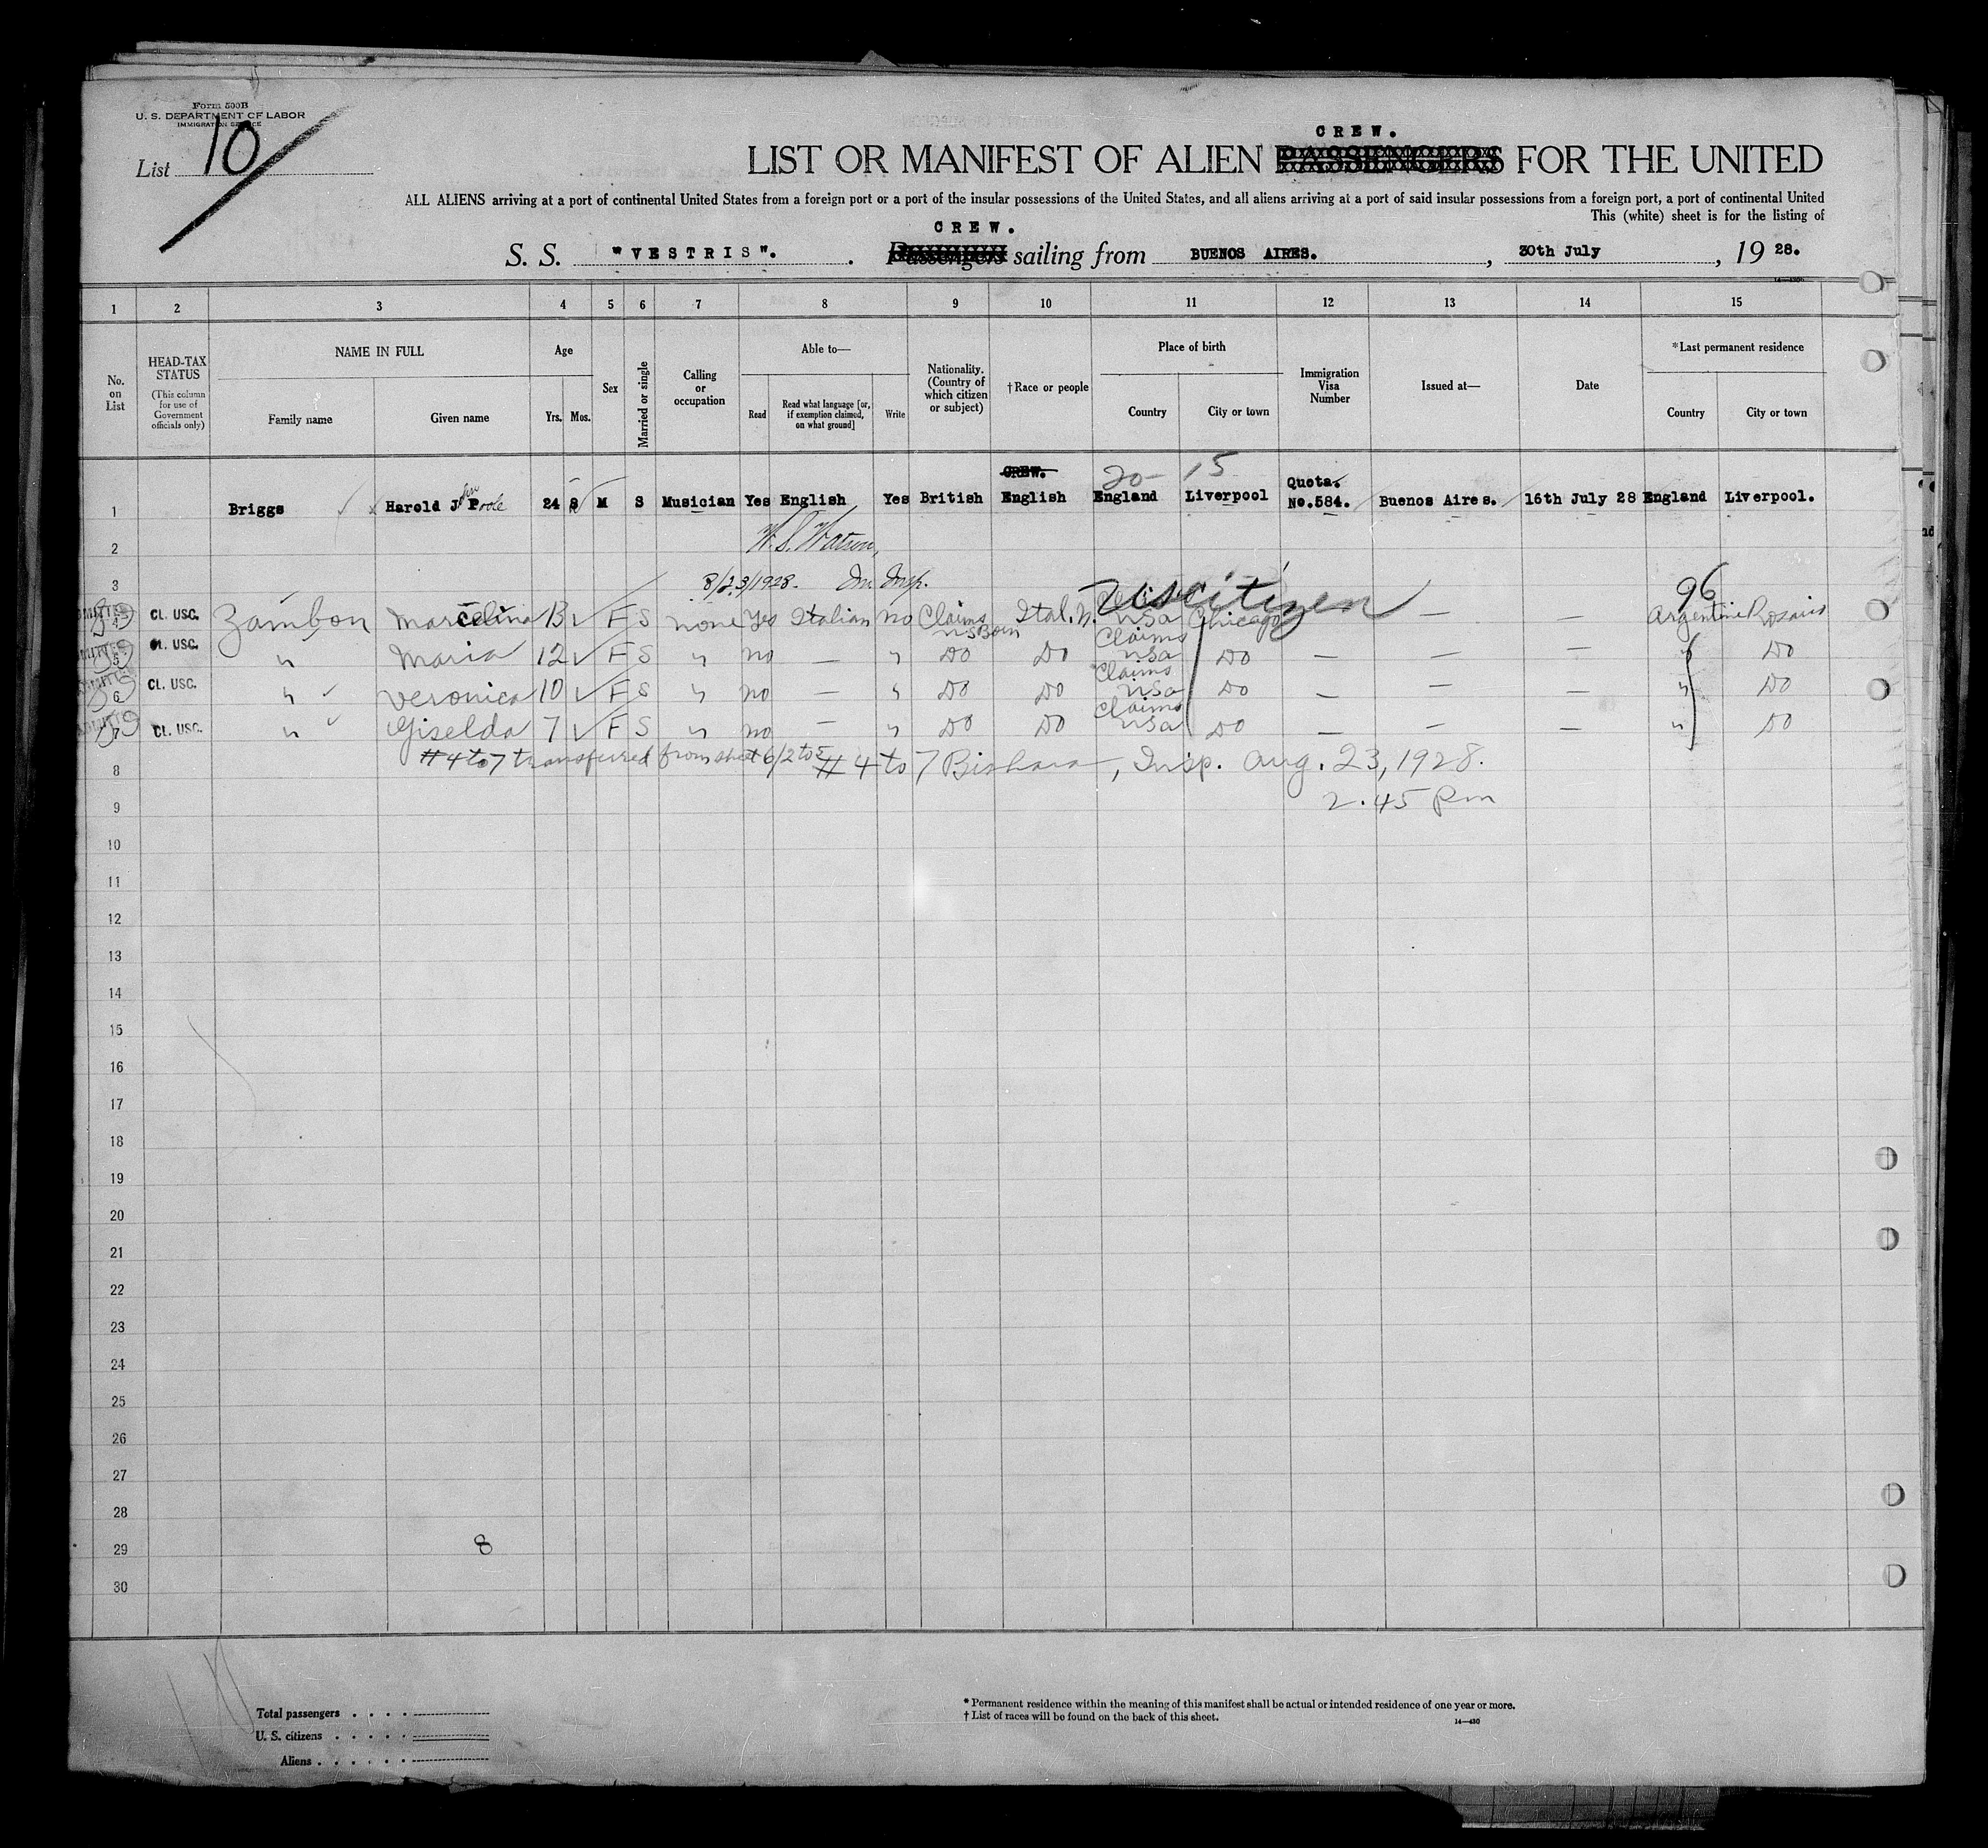 Form 500B
U. S. DEPARTMENT OF LABOR
IMMIGRATION SERVICE
List 10
CREW.
LIST OR MANIFEST OF ALIEN PASSENGERS FOR THE UNITED
ALL ALIENS arriving at a port of continental United States from a foreign port or a port of the insular possessions of the United States, and all aliens arriving at a port of said insular possessions from a foreign port, a port of continental United
This (white) sheet is for the listing of
CREW.
S. S. "VESTRIS". Passengers sailing from BUENOS AIRES. , 30th July , 19 28.
14—430
1 2 3 4 5 6 7 8 9 10 11 12 13 14 15
No. on List
HEAD-TAX STATUS (This column for use of Government officials only)
NAME IN FULL
Family name Given name
Age
Yrs. Mos.
Sex
Married or single
Calling or occupation
Able to—
Read Read what language [or, if exemption claimed, on what ground] Write
Nationality. (Country of which citizen or subject)
†Race or people
Place of birth
Country City or town
Immigration Visa Number
Issued at—
Date
*Last permanent residence
Country City or town
CREW. 20- 15
1 Briggs Harold John Poole 24 8 M S Musician Yes English Yes British English England Liverpool Quota. No.584. Buenos Aires. 16th July 28 England Liverpool.
2 W. S. Watson,
3 8/23/1928. Im. Insp.
US citizen 96
4 Cl. USC. Zambon Marcelina 13 F S none Yes Italian no Claims US Born Ital. N. USA Chicago — — Argentine Rosario
5 Cl. USC. " Maria 12 F S " no — " Do Do Claims USA Do — — — " Do
6 Cl. USC. " Veronica 10 F S " no — " Do Do Claims USA Do — — — " Do
7 Cl. USC. " Giselda 7 F S " no — " Do Do Claims USA Do — — — " Do
# 4 to 7 transferred from sheet 6/2 to 5 # 4 to 7 Bishara, Insp. Aug. 23, 1928.
8
2.45 Pm
9
10
11
12
13
14
15
16
17
18
19
20
21
22
23
24
25
26
27
28
29 8
30
Total passengers . . . .
U. S. citizens . . . . .
Aliens . . . . . .
* Permanent residence within the meaning of this manifest shall be actual or intended residence of one year or more.
† List of races will be found on the back of this sheet.
14—430